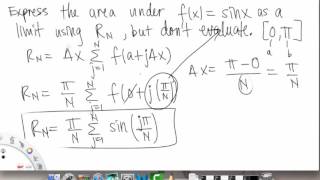 Express the area under f(x) = sinx as a
limit using R_N, but don't evaluate. [0, π]
R_N = Δx ∑_{j=1}^{N} f(a+jΔx)
a b
Δx = (π-0)/N = π/N
R_N = π/N ∑_{j=1}^{N} f(0+j(π/N))
R_N = π/N ∑_{j=1}^{N} sin(jπ/N)